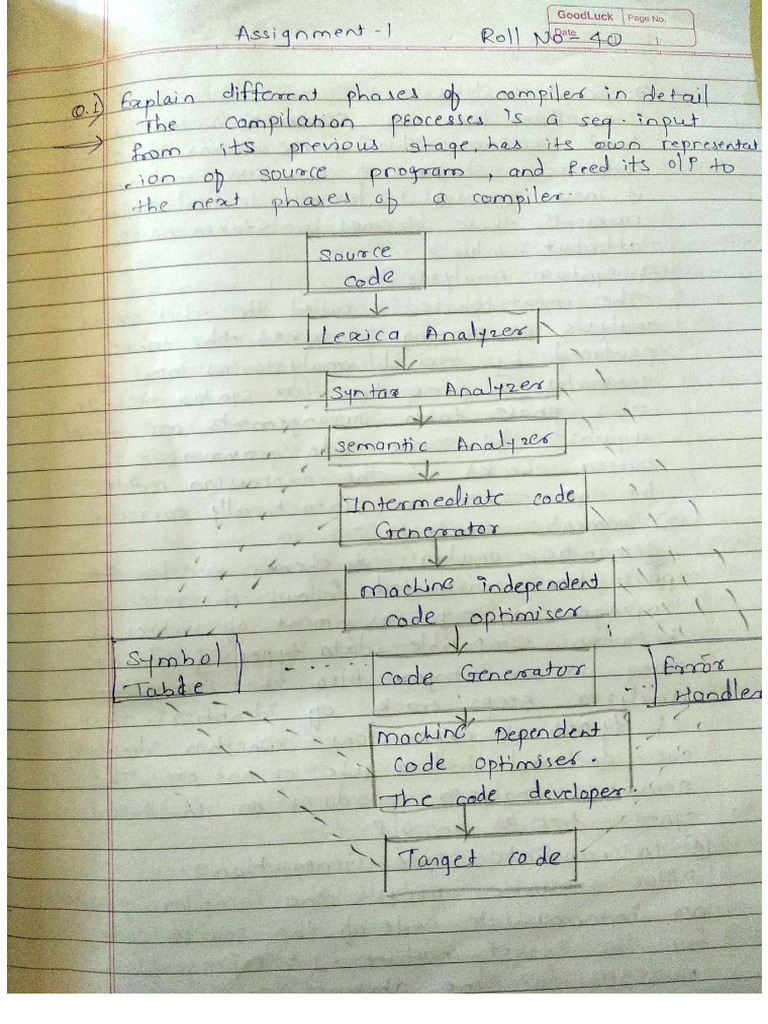 GoodLuck Page No.
Date
Assignment -1 Roll No - 40
Q.1) Explain different phases of compiler in detail
The compilation processes is a seq. input
→ from its previous stage, has its own representat
-ion of source program, and feed its o/p to
the next phases of a compiler.
Source
code
Lexica Analyzer
Syntax Analyzer
semantic Analyzer
Intermediate code
Generator
machine independent
code optimiser
Symbol
Table
code Generator
Error
Handler
Machine Dependent
code optimiser.
The code developer.
Target code